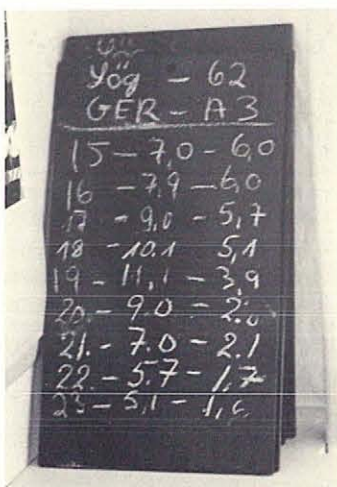 Yög - 62
GER - A3
15 - 7,0 - 6,0
16 - 7,9 - 6,0
17 - 9,0 - 5,7
18 - 10.1 5,1
19 - 11,1 - 3,9
20. - 9.0 - 2.
21. - 7.0 - 2.1
22. - 5.7 - 1,7
23 - 5,1 - 1,